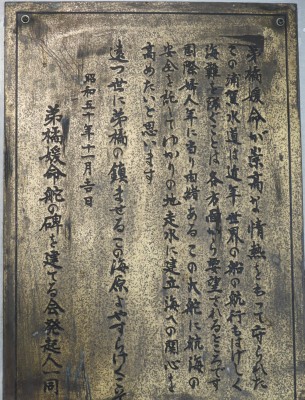 弟橘媛命が崇高な情熱をもって守られた
この浦賀水道は近年世界の船の航行もはげしく
海難を源ぐことは各方面から要望されるところです
国際婦人年に当り由緒あるこの大舵に航海の
安全を託してゆかりの地走水に建立海への関心を
高めたいと思います
遠つ世に弟橘の鎮ませるこの海原よやすらけくこそ
昭和五十年十一月吉日
弟橘媛命舵の碑を建てる会発起人一同